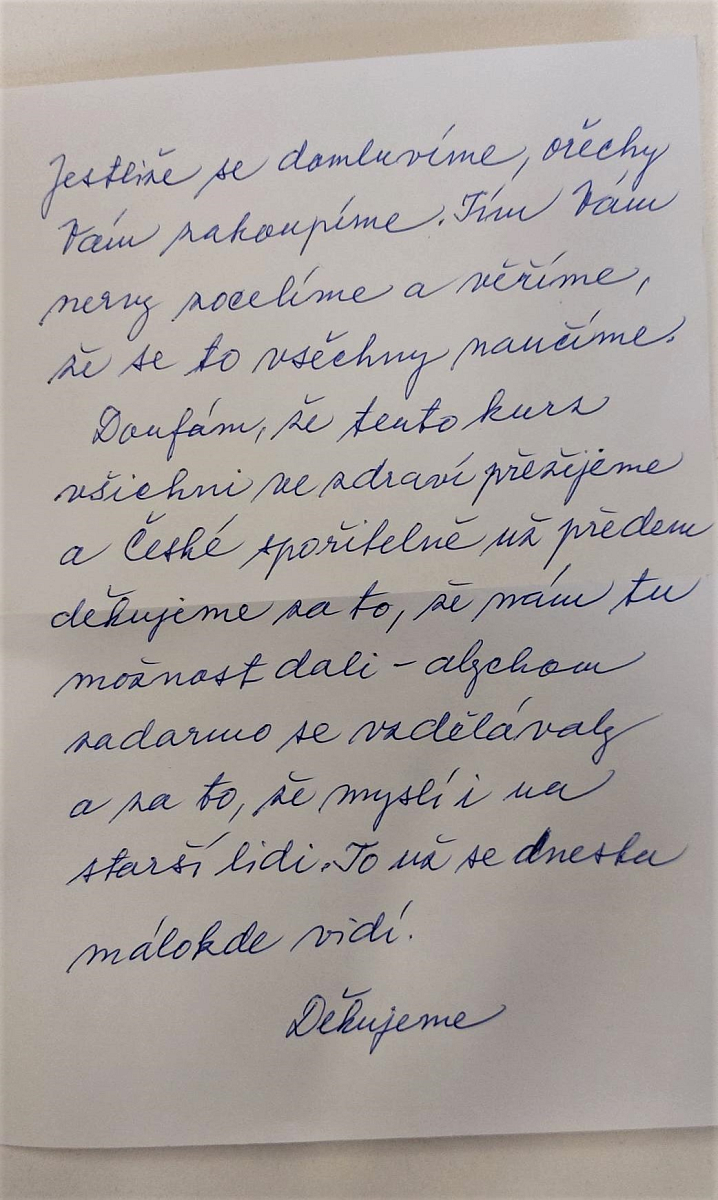 Jestliže se domluvíme, ořechy
Vám zakoupíme. Tím Vám
nervy zocelíme a věříme,
že se to všechny naučíme.
Doufám, že tento kurz
všichni ve zdraví přežijeme
a České spořitelně už předem
děkujeme za to, že nám tu
možnost dali - abychom
zadarmo se vzdělávaly
a za to, že myslí i na
starší lidi. To už se dneska
málokde vidí.
Děkujeme